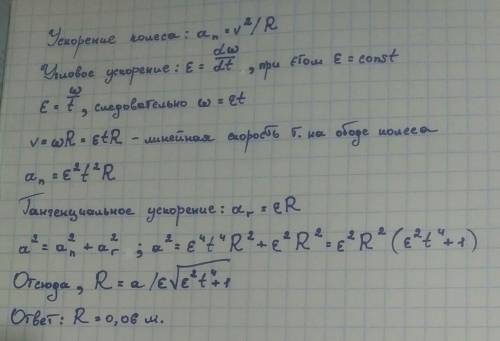 Ускорение колеса: aₙ = v²/R
Угловое ускорение: ε = dω/dt, при этом ε = const
ε = ω/t, следовательно ω = εt
v = ωR = εtR – линейная скорость т. на ободе колеса
aₙ = ε²t²R
Тангенциальное ускорение: aᵣ = εR
a² = aₙ² + aᵣ² ; a² = ε⁴t⁴R² + ε²R² = ε²R² (ε²t⁴+1)
Отсюда, R = a/ε√ε²t⁴+1
Ответ: R = 0,06 м.